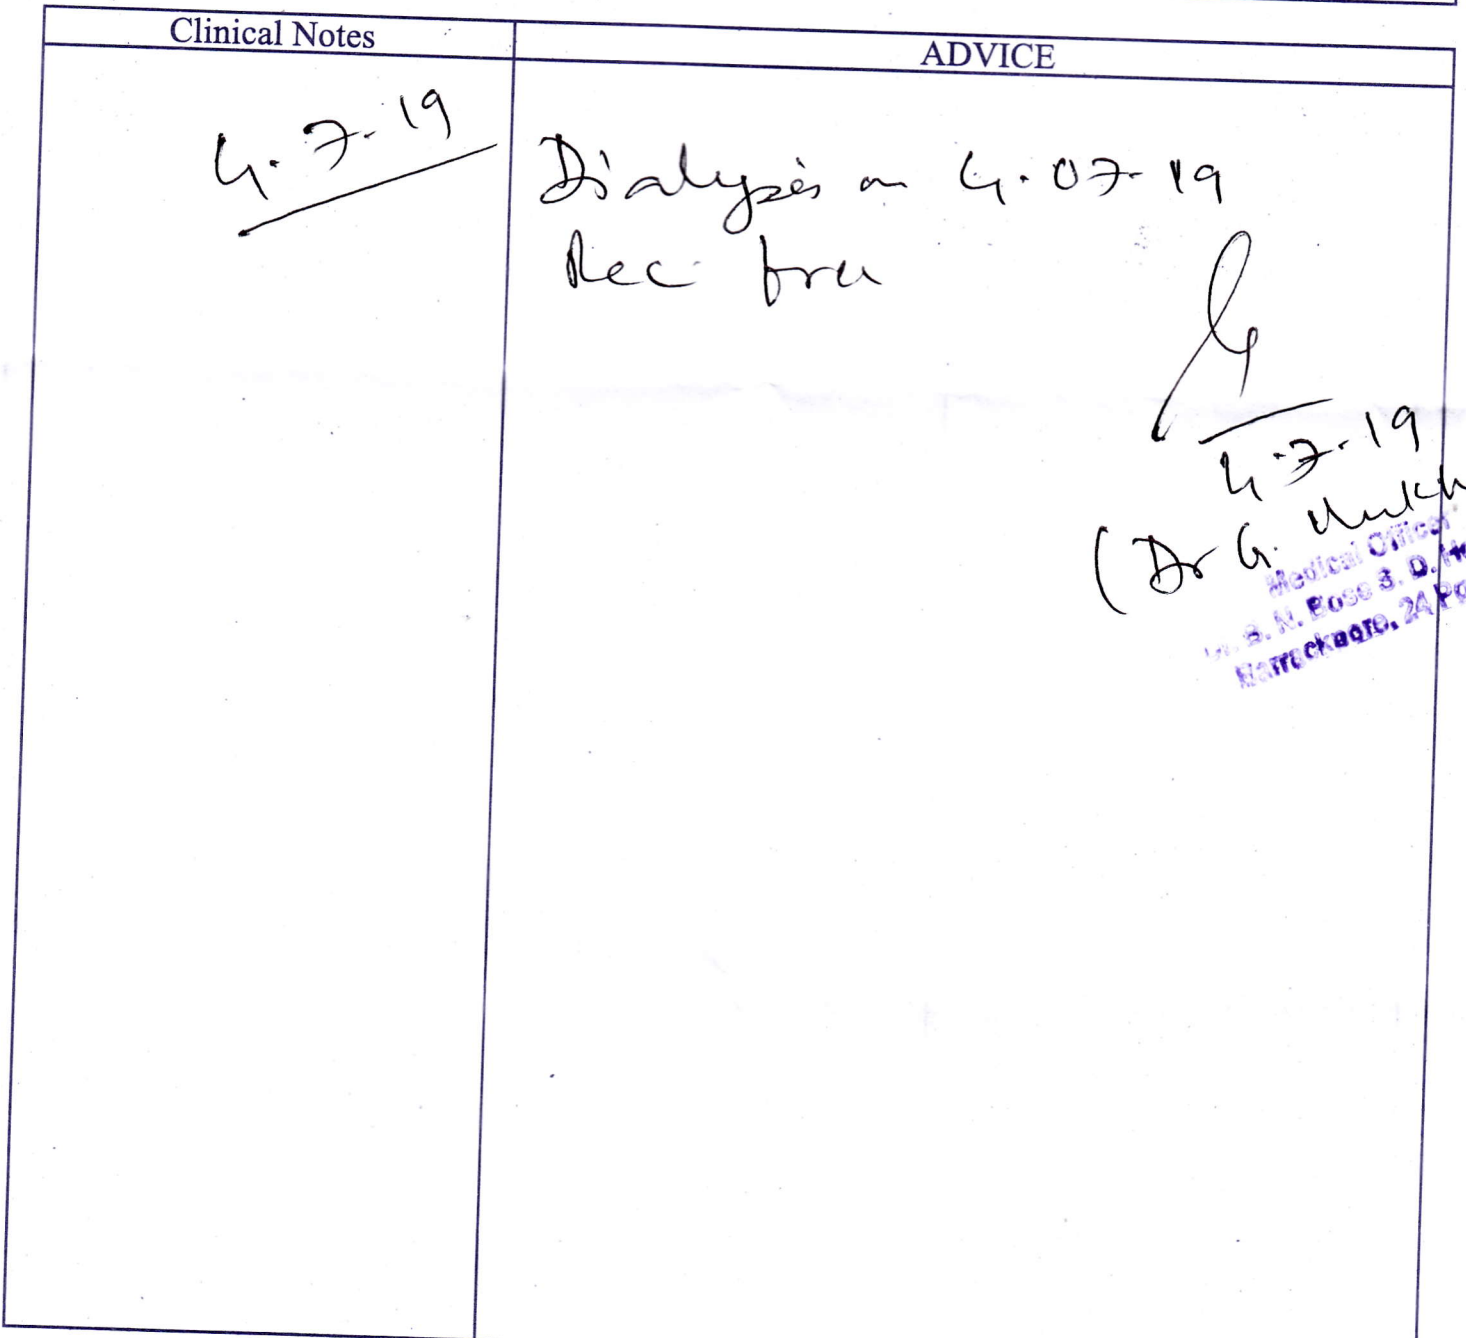 Clinical Notes
ADVICE
4.7.19
Dialysis on 4.07.19
Rec free
4.7.19
(Dr G. Mukh
Medical Officer
B. N. Bose S. D. Ho
Barrackpore, 24 Pg